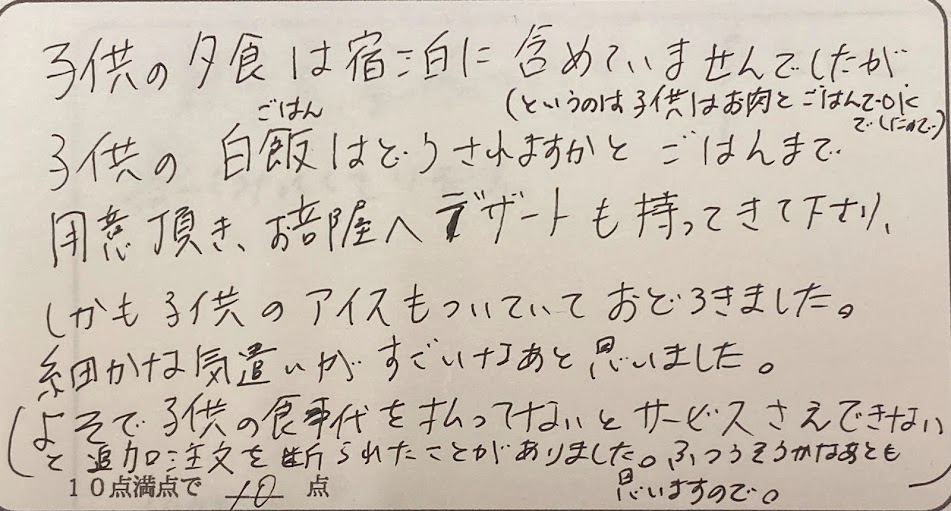 子供の夕食は宿泊に含めていませんでしたが
(というのは子供はお肉とごはんでOK
でしたので)
ごはん
子供の白飯はどうされますかと ごはんまで
用意頂き、お部屋へデザートも持ってきて下さり、
しかも子供のアイスもついていておどろきました。
細かな気遣いがすごいなあと思いました。
(よそで子供の食事代を払ってないとサービスさえできない
と追加注文を断られたことがありました。ふつうそうかなあとも
思いますので。)
10点満点で 10 点